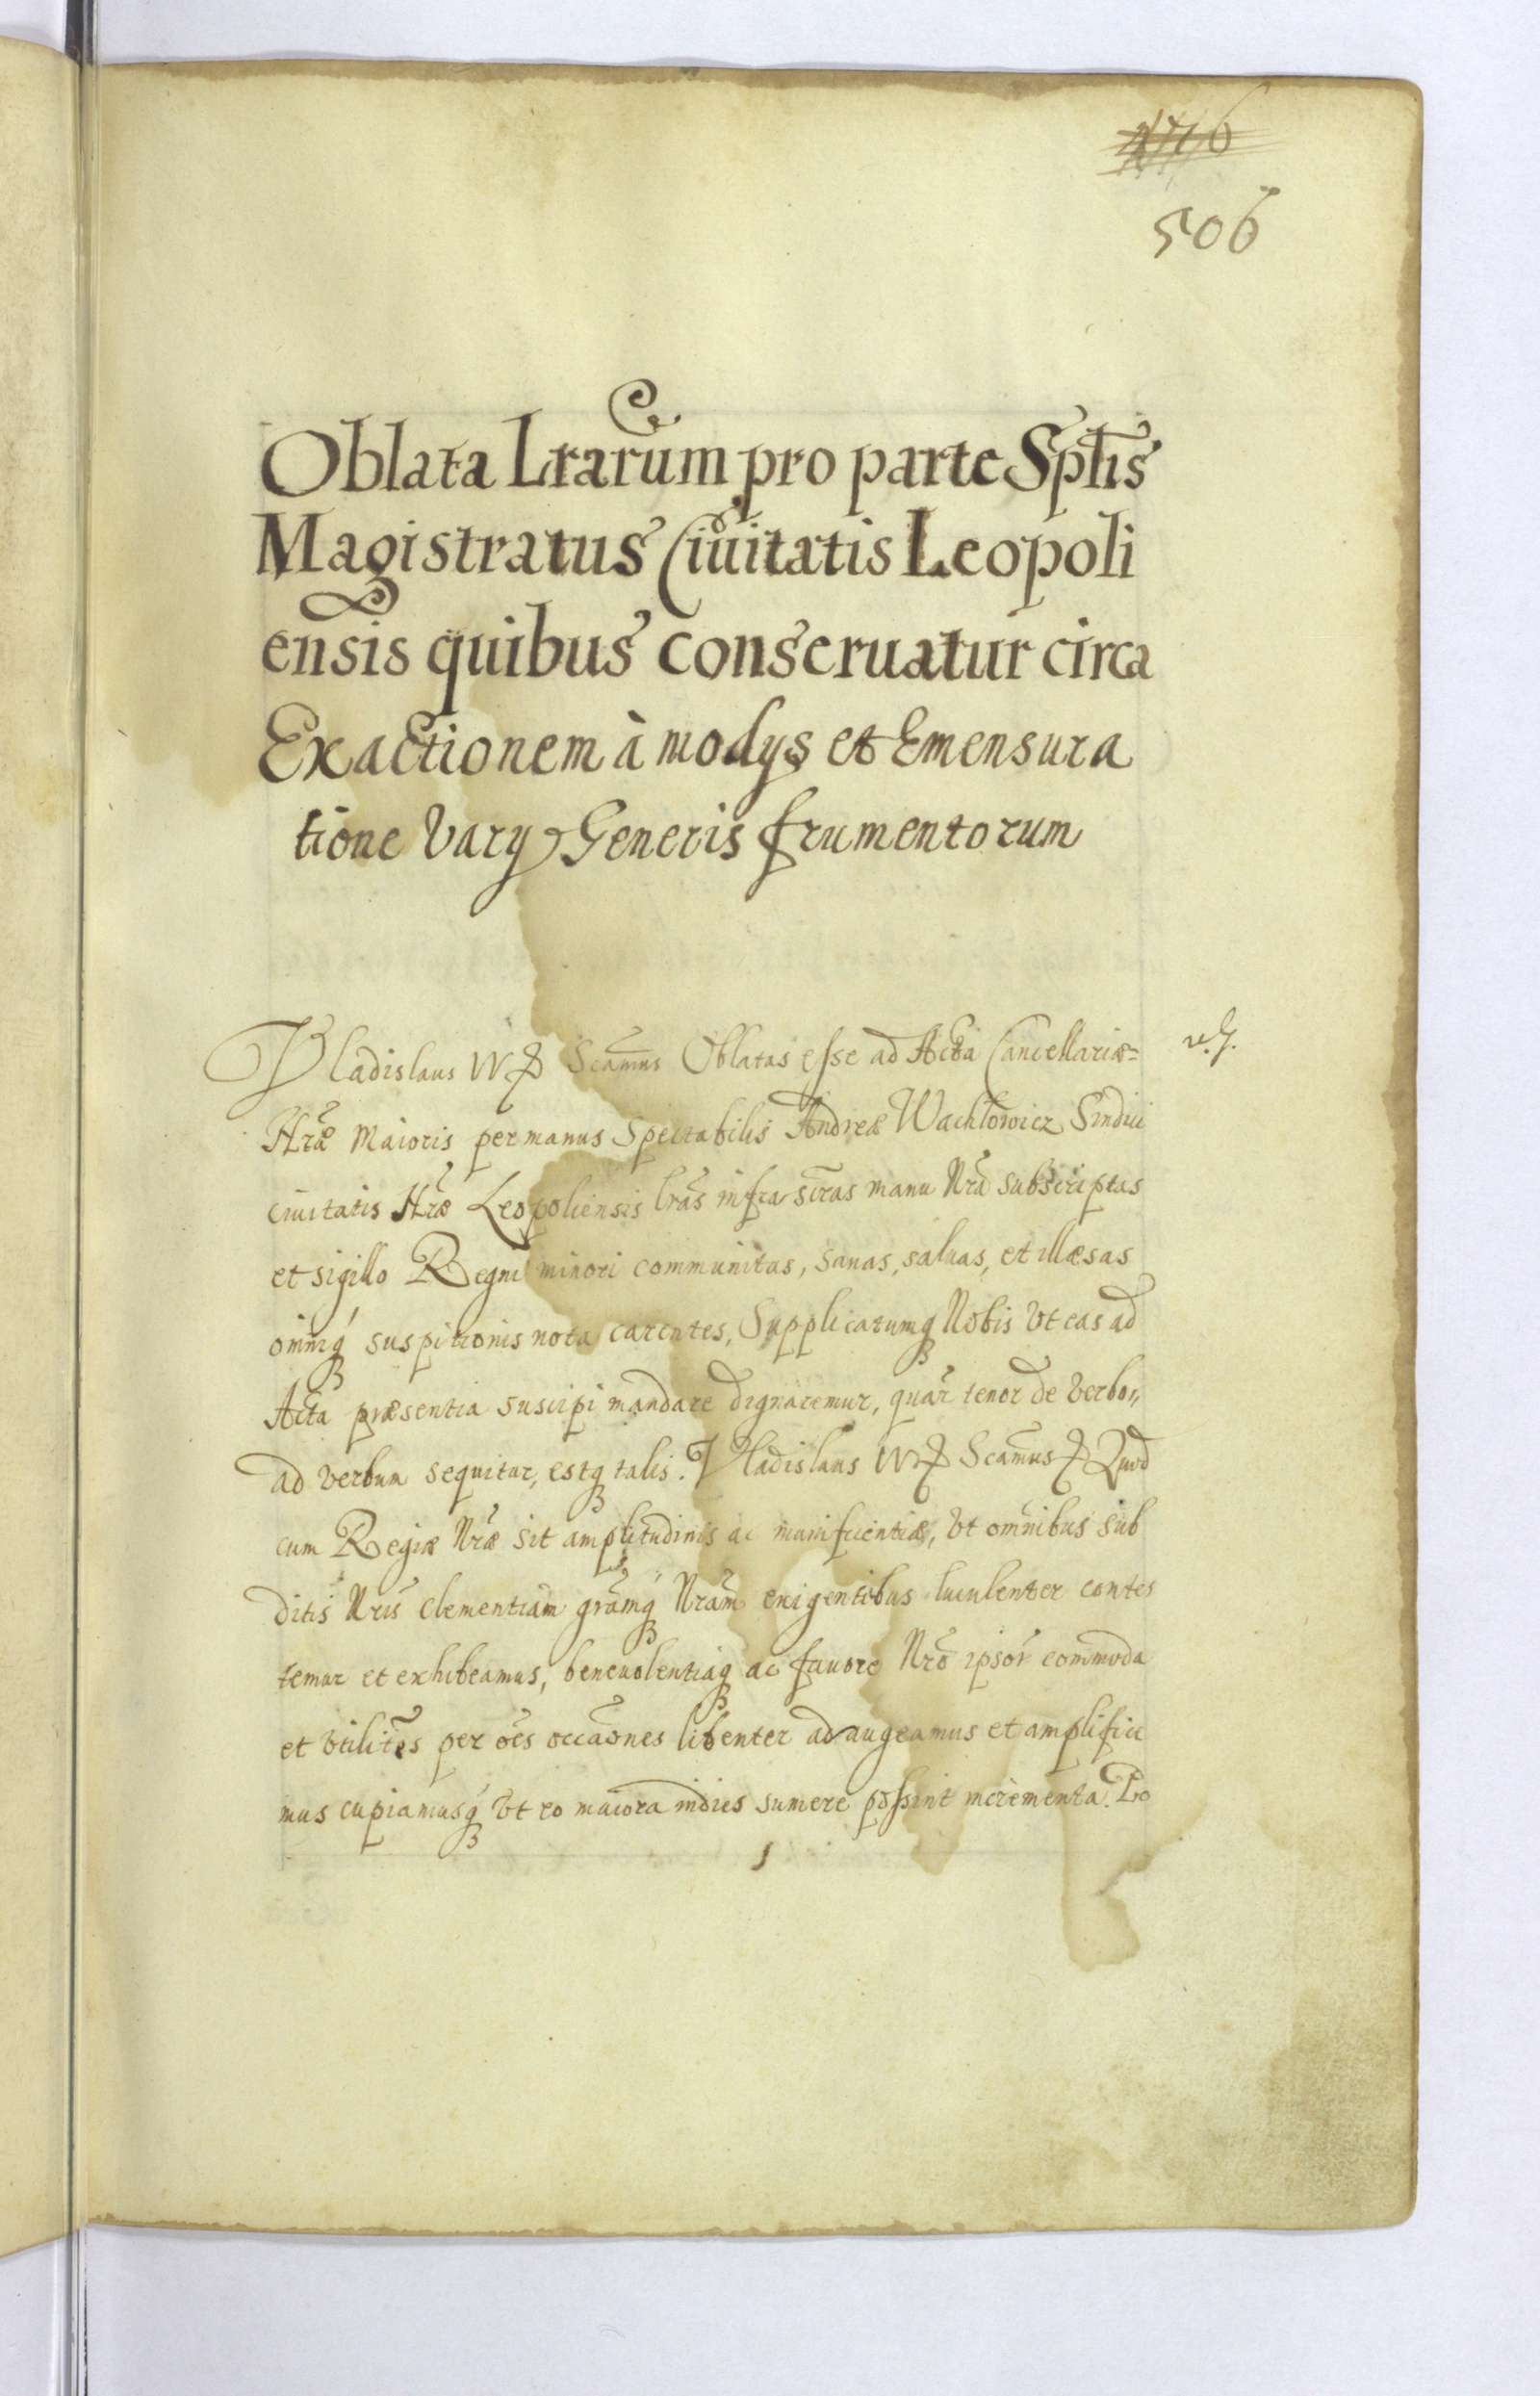 506
Oblata Lrarum pro parte Spłis
Magistratus Ciuitatis Leopoli
ensis quibus conseruatur circa
Exactionem à modys et Emensura
tione Vary Generis frumentorum
Vladislaus IV Scamus Oblatas esse ad Acta Cancellariæ
Nræ Maioris per manus Spectabilis Andreæ Wachlowicz Sindici
ciuitatis Nræ Leopoliensis lras infra scras manu Nra subscriptas
et sigillo Regni minori communitas, sanas, saluas, et illæsas
omniq suspitionis nota carentes, Supplicatumq Nobis Vt eas ad
Acta præsentia suscipi mandare dignaremur, quar tenor de verbo
ad verbum sequitur, estq talis. Vladislaus IV Scamus Quod
cum Regiæ Nræ sit amplitudinis ac munificentiæ, Vt omnibus sub
ditis Nris clementiam gramq Nram exigentibus luculenter contes
temur et exhibeamus, beneuolentiaq ac fauore Nro ipsor commoda
et Vtilites per oes occaones libenter adaugeamus et amplifice
mus cupiamusq Vt eo maiora indies sumere possint incrementa. Po